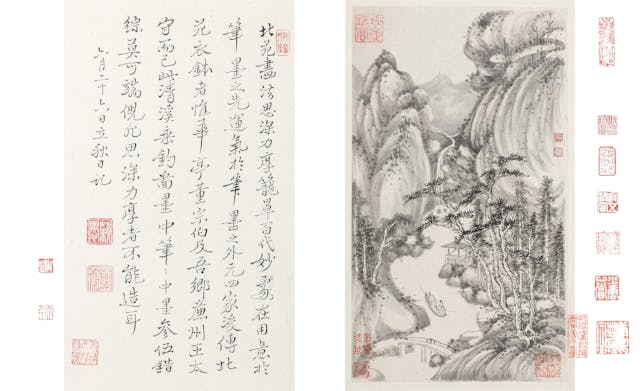 北苑畫法思深力厚籠罩百代妙處在用意於
筆墨之先運氣於筆墨之外元四家後傳北
苑衣鉢者惟華亭董宗伯及吾鄉廉州王太
守而已此清溪垂釣啚墨中筆〻中墨參伍錯
綜莫可端倪非思深力厚者不能造耳
六月二十六日立秋日記